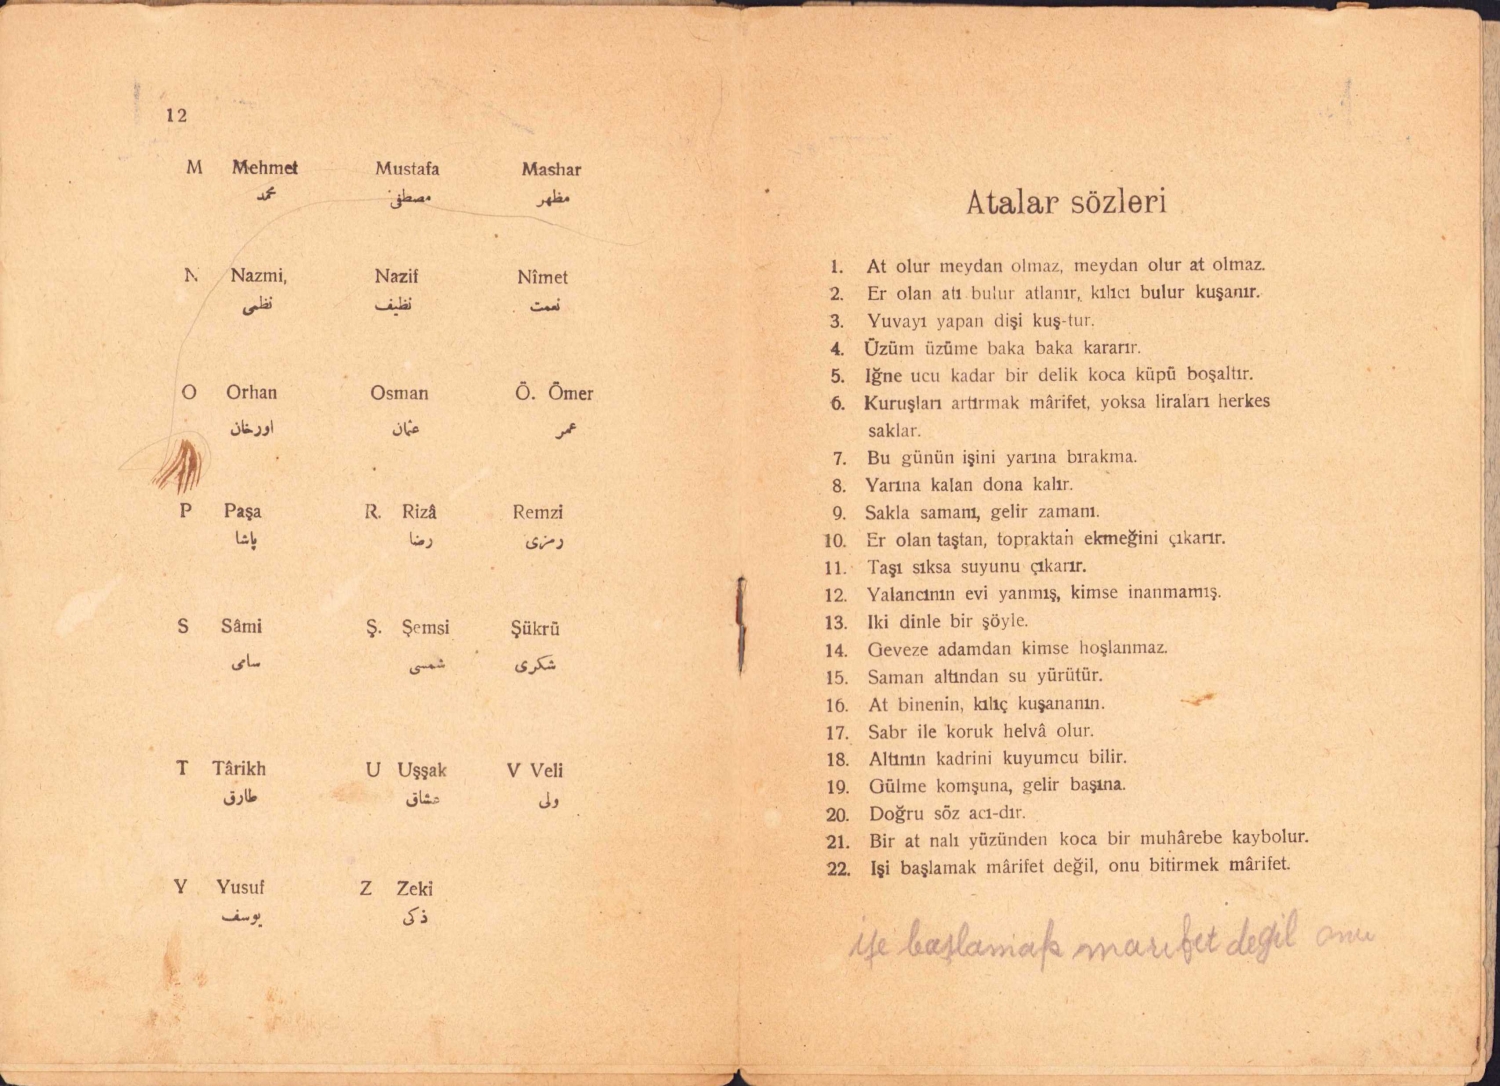 12
M Mehmet Mustafa Mashar
محمد مصطفى مظهر
N Nazmi, Nazif Nîmet
نظمى نظيف نعمت
O Orhan Osman Ö. Ömer
اورخان عثمان عمر
P Paşa R. Rizâ Remzi
پاشا رضا رمزى
S Sâmi Ş. Şemsi Şükrü
سامى شمسى شكرى
T Târikh U Uşşak V Veli
طارق عشاق ولى
Y Yusuf Z Zeki
يوسف ذكى
Atalar sözleri
1. At olur meydan olmaz, meydan olur at olmaz.
2. Er olan atı bulur atlanır, kılıcı bulur kuşanır.
3. Yuvayı yapan dişi kuş-tur.
4. Üzüm üzüme baka baka kararır.
5. Iğne ucu kadar bir delik koca küpü boşaltır.
6. Kuruşları artırmak mârifet, yoksa liraları herkes
saklar.
7. Bu günün işini yarına bırakma.
8. Yarına kalan dona kalır.
9. Sakla samanı, gelir zamanı.
10. Er olan taştan, topraktan ekmeğini çıkarır.
11. Taşı sıksa suyunu çıkarır.
12. Yalancının evi yanmış, kimse inanmamış.
13. Iki dinle bir şöyle.
14. Geveze adamdan kimse hoşlanmaz.
15. Saman altından su yürütür.
16. At binenin, kılıç kuşananın.
17. Sabr ile koruk helvâ olur.
18. Altının kadrini kuyumcu bilir.
19. Gülme komşuna, gelir başına.
20. Doğru söz acı-dır.
21. Bir at nalı yüzünden koca bir muhârebe kaybolur.
22. Işi başlamak mârifet değil, onu bitirmek mârifet.
işe başlamak marifet değil onu